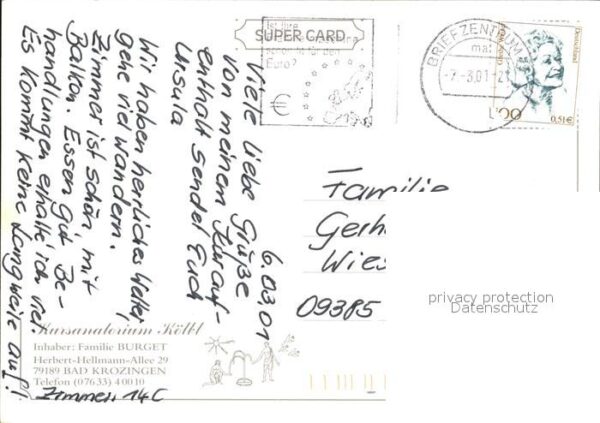 SUPER CARD
Ist Ihre
Euro?
€
BRIEFZENTRUM
-7.-3.01-21
Deutschland
0,51€
6.03.01
Viele liebe Grüße
von meinem Kurauf-
enthalt sendet Euch
Ursula
Wir haben herrliches Wetter,
gehe viel wandern.
Zimmer ist schön, mit
Balkon. Essen gut. Be-
handlungen erhalte ich viel.
Es kommt keine Langweile auf!
Familie
Gerh
Wies
09385
privacy protection
Datenschutz
Kursanatorium Kölbl
Inhaber: Familie BURGET
Herbert-Hellmann-Allee 29
79189 BAD KROZINGEN
Telefon (07633) 40010
Zimmer. 14C